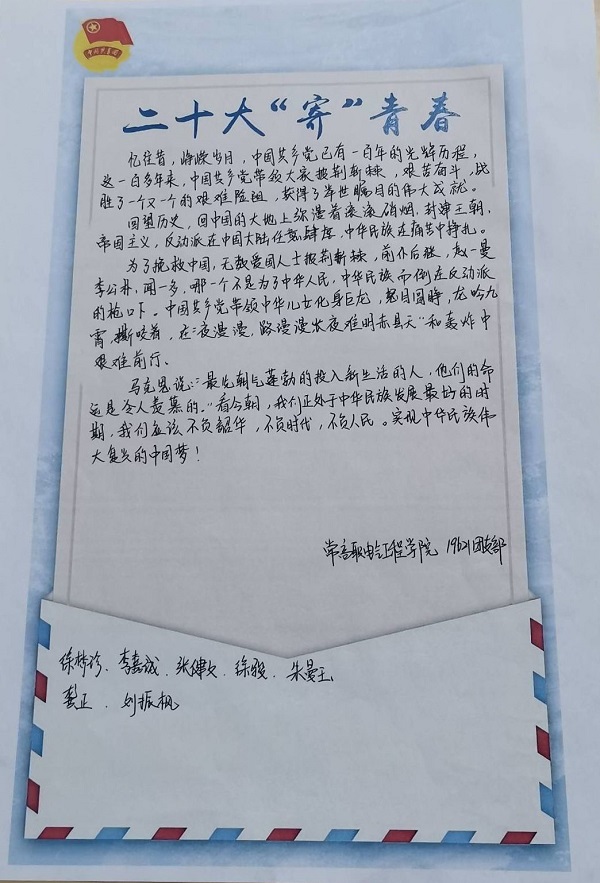 中国共青团
二十大“寄”青春
忆往昔，峥嵘岁月，中国共产党已有一百年的光辉历程，
这一百多年来，中国共产党带领大家披荆斩棘，艰苦奋斗，战
胜了一个又一个的艰难险阻，获得了举世瞩目的伟大成就。
回望历史，回中国的大地上弥漫着滚滚硝烟，封建王朝，
帝国主义，反动派在中国大陆任意肆虐，中华民族在痛苦中挣扎。
为了挽救中国，无数爱国人士披荆斩棘，前仆后继，赵一曼
李公朴，闻一多，哪一个不是为了中华人民，中华民族而倒在反动派
的枪口下。中国共产党带领中华儿女化身巨龙，怒目圆睁，龙吟九
霄，撕咬着，在“夜漫漫，路漫漫长夜难明赤县天”和轰炸中
艰难前行。
马克思说：“最先朝气蓬勃的投入新生活的人，他们的命
运是令人羡慕的。”看今朝，我们正处于中华民族发展最好的时
期，我们应该不负韶华，不负时代，不负人民。实现中华民族伟
大复兴的中国梦！
工程学院 19621团支部
徐梦珍、李嘉诚、张健、徐骏、朱曼玉、
龚正、刘振枫